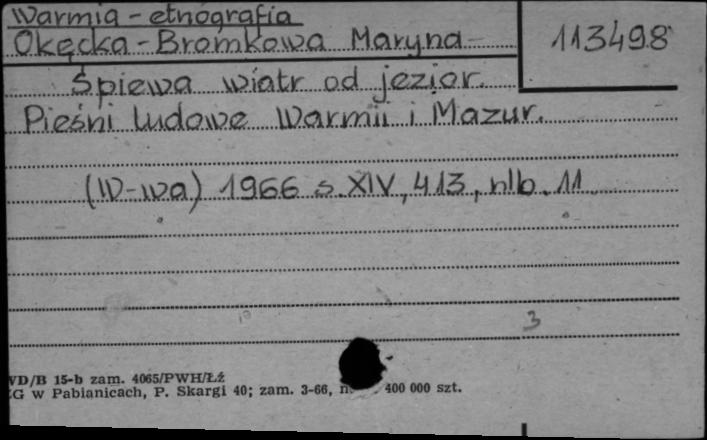 Warmia - etnografia
Okęcka-Bromkowa Maryna 113498
Śpiewa wiatr od jezior.
Pieśni ludowe Warmii i Mazur.
(W-wa) 1966 s. XIV, 413, nlb. 11
3
WD/B 15-b zam. 4065/PWH/Łź
ZG w Pabianicach, P. Skargi 40; zam. 3-66, 400 000 szt.